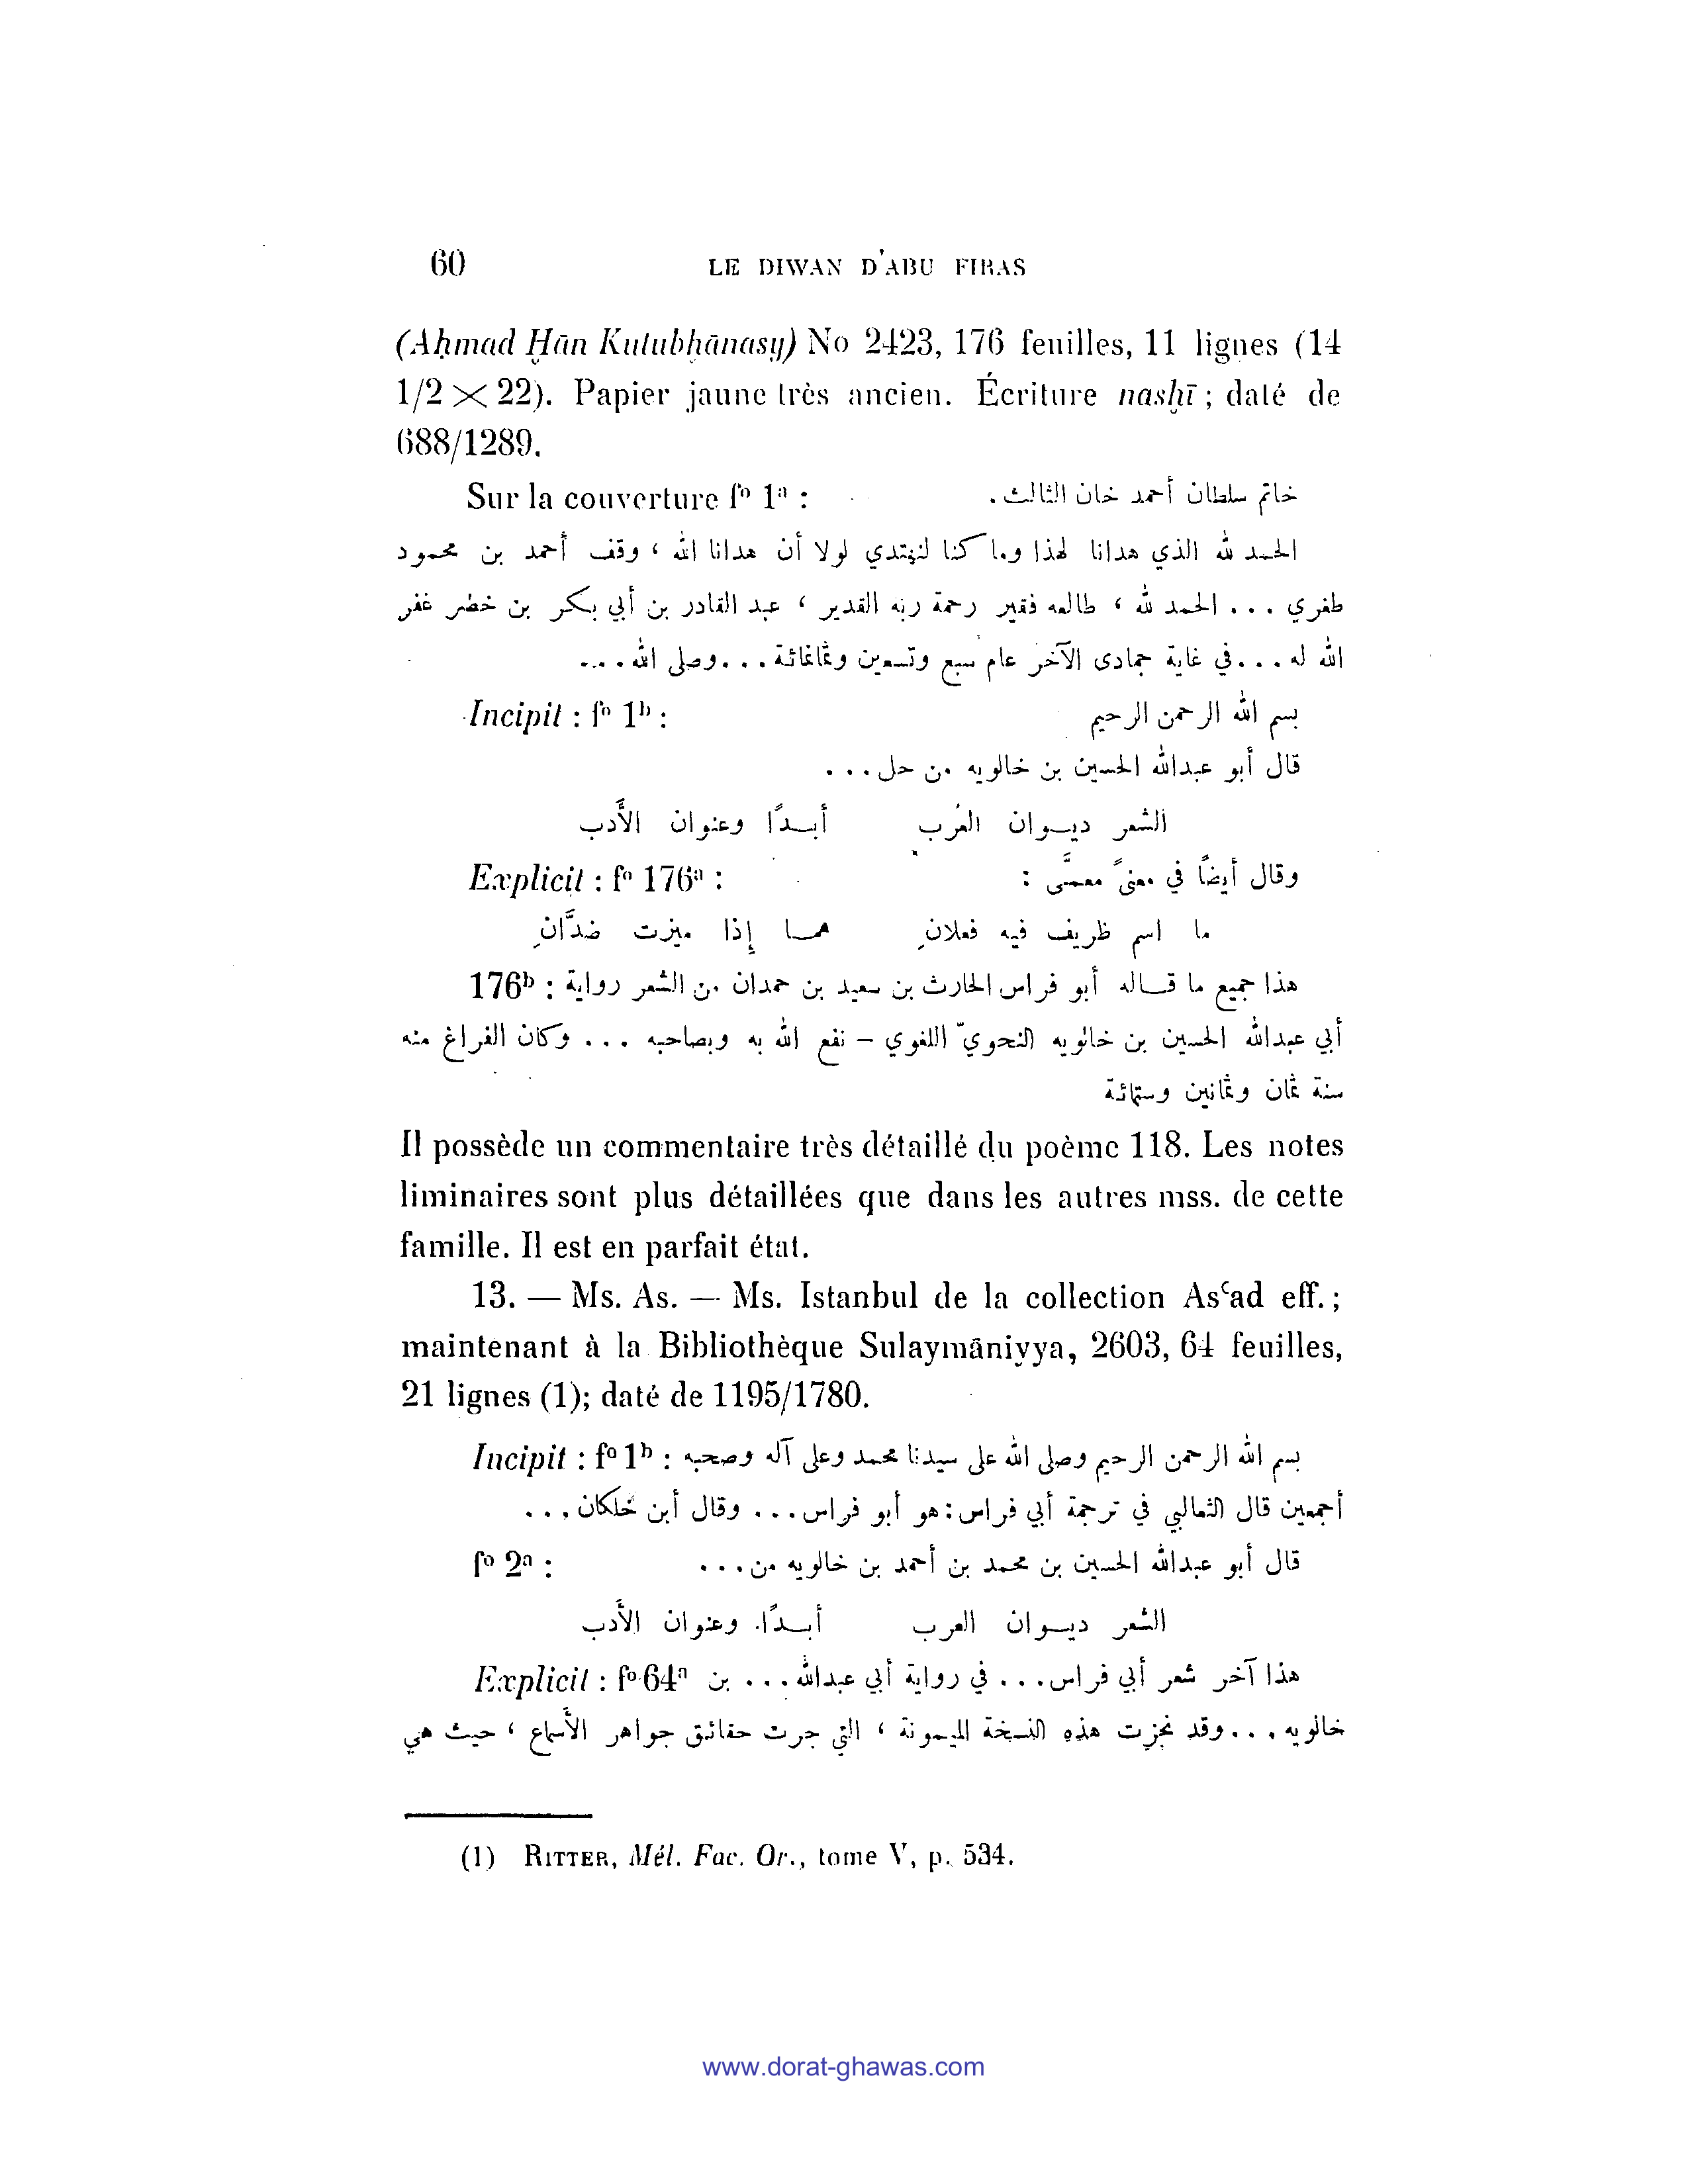 60 LE DIWAN D'ABU FIRAS
(Aḥmad Ḫān Kutubḫānasy) No 2423, 176 feuilles, 11 lignes (14
1/2 × 22). Papier jaune très ancien. Écriture nasḫī ; daté de
688/1289.
Sur la couverture fº 1ª : خاتم سلطان أحمد خان الثالث .
الحمد لله الذي هدانا لهذا وما كنا لنهتدي لولا أن هدانا الله ، وقف أحمد بن محمود
طغري ... الحمد لله ، طالعه فقير رحمة ربه القدير ، عبد القادر بن أبي بكر بن خضر غفر
الله له ... في غاية جمادى الآخر عام سبع وتسعين وثمانمائة ... وصلى الله ...
Incipit : fº 1ᵇ : بسم الله الرحمن الرحيم
قال أبو عبدالله الحسين بن خالويه من حل ...
الشعر ديـوان العرب أبـدًا وعنوان الأَدب
Explicit : fº 176ª : وقال أيضاً في معنىً معمَّى :
ما اسم ظريف فيه فعلانِ همـا إذا ميزت ضدَّانِ
176ᵇ : هذا جميع ما قـاله أبو فراس الحارث بن سعيد بن حمدان من الشعر رواية
أبي عبدالله الحسين بن خالويه النحويّ اللغوي – نفع الله به وبصاحبه ... وكان الفراغ منه
سنة ثمان وثمانين وستمائة
Il possède un commentaire très détaillé du poème 118. Les notes
liminaires sont plus détaillées que dans les autres mss. de cette
famille. Il est en parfait état.
13. — Ms. As. — Ms. Istanbul de la collection Asʿad eff. ;
maintenant à la Bibliothèque Sulaymāniyya, 2603, 64 feuilles,
21 lignes (1); daté de 1195/1780.
Incipit : fº 1ᵇ : بسم الله الرحمن الرحيم وصلى الله على سيدنا محمد وعلى آله وصحبه
أجمعين قال الثعالبي في ترجمة أبي فراس : هو أبو فراس ... وقال أبن خلكان ...
fº 2ª : قال أبو عبدالله الحسين بن محمد بن أحمد بن خالويه من ...
الشعر ديـوان العرب أبـدًا وعنوان الأَدب
Explicit : fº 64ª هذا آخر شعر أبي فراس ... في رواية أبي عبدالله ... بن
خالويه ... وقد نجزت هذه النسخة الميمونة ، التي جرت حقائق جواهر الأسماع ، حيث هي
(1) RITTER, Mél. Fac. Or., tome V, p. 534.
www.dorat-ghawas.com